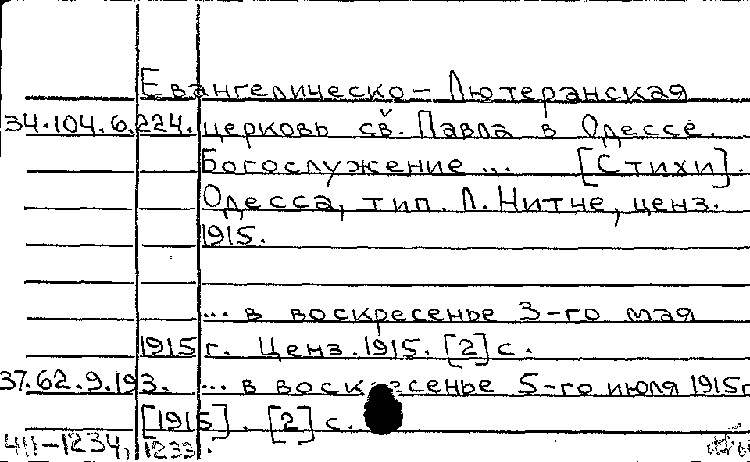 Евангелическо-Лютеранская
34.104.6.224. церковь св. Павла в Одессе.
Богослужение ... [Стихи].
Одесса, тип. Л. Нитче, ценз.
1915.
... в воскресенье 3-го мая
1915 г. Ценз. 1915. [2] с.
37.62.9.193. ... в воскресенье 5-го июля 1915г
[1915]. [2] с.
411-1234, 1233.